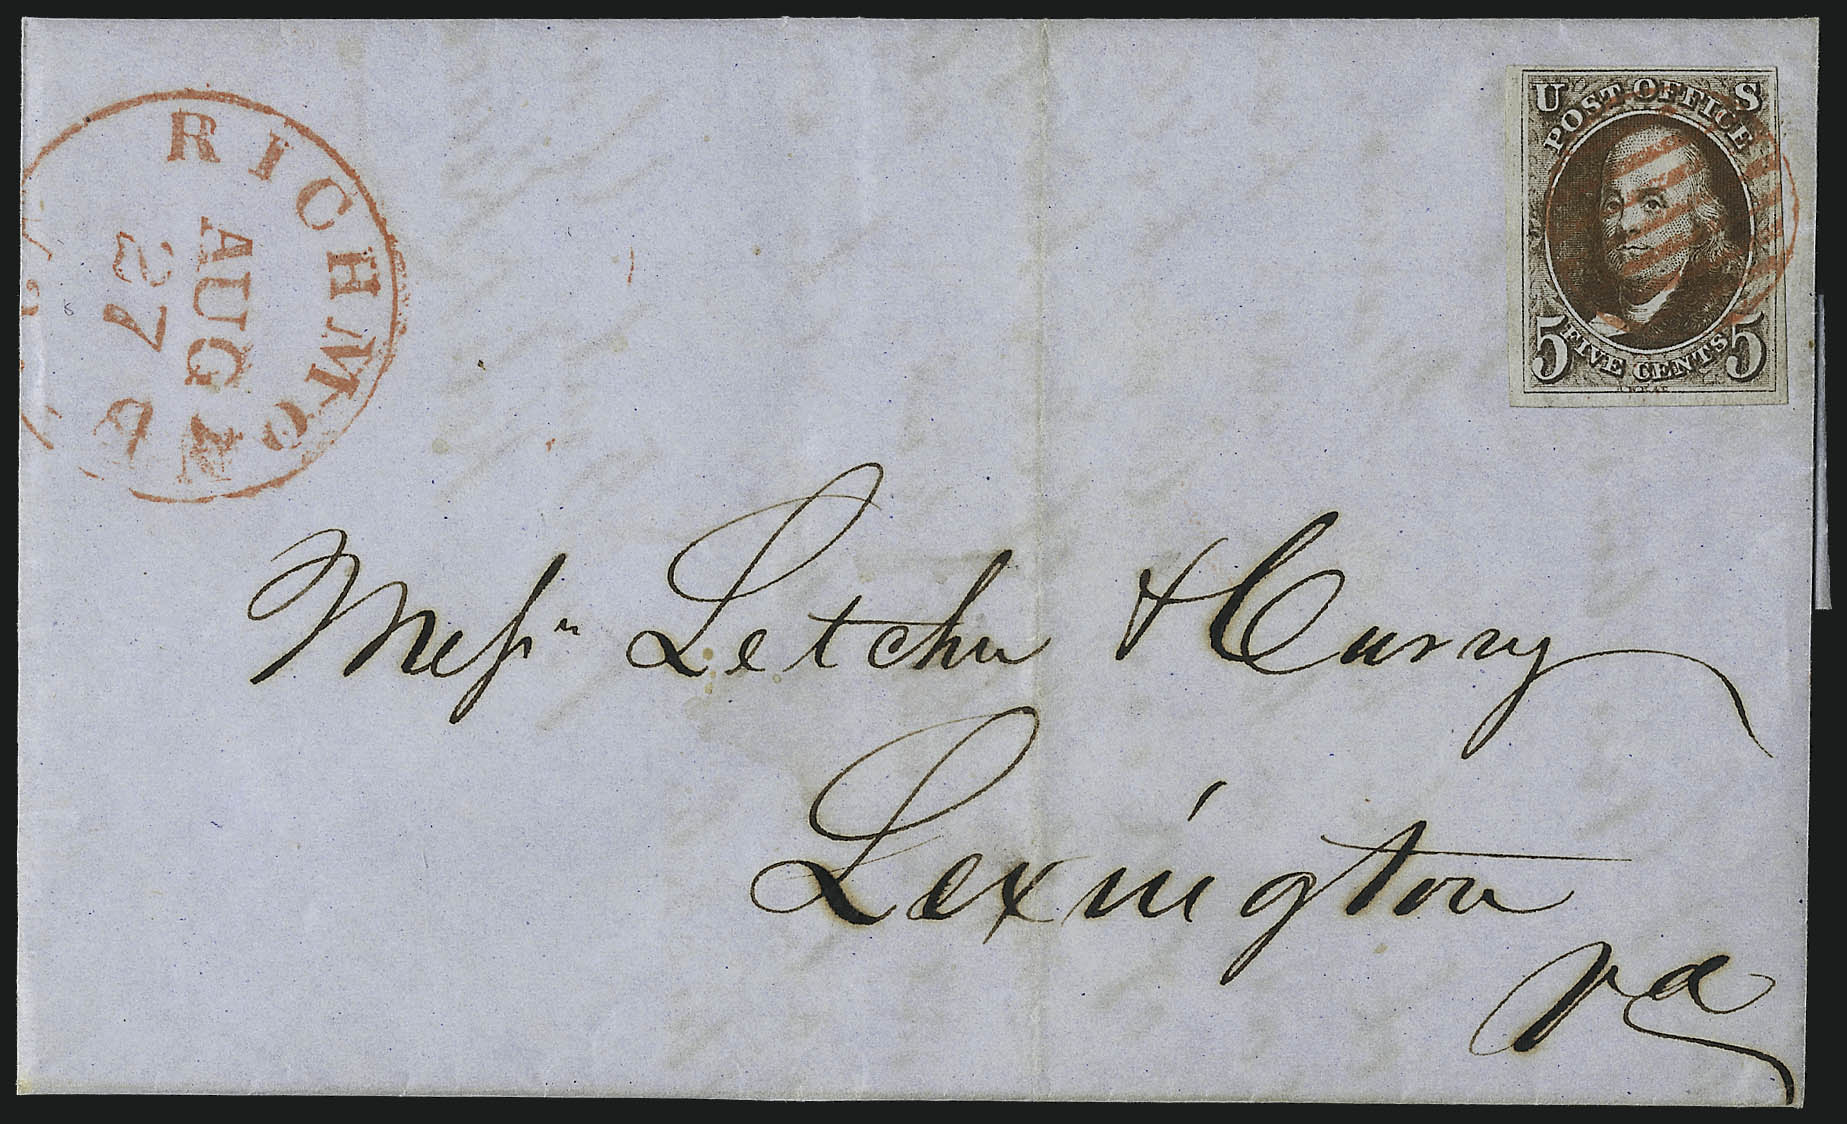 RICHMOND Va
AUG
27
U S
POST OFFICE
5 FIVE CENTS 5
Messrs Letcher & Curry
Lexington
Va